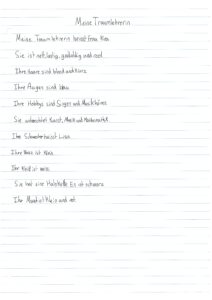 Meine Traumlehrerin
Meine Traumlehrerin heisst Frau Kim
Sie ist nett, lustig, geduldig und cool
Ihre Haare sind blond und kurz
Ihre Augen sind blau
Ihre Hobbys sind Singen und Musik hören
Sie unterrichtet Kunst, Musik und Mathematik
Ihre Schwester heisst Lisa
Ihre Nase ist klein
Ihr Kleid ist
Sie hat eine Halskette Er ist schwarz
Ihr Mund ist klein und rot